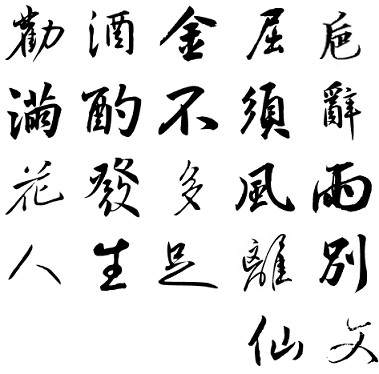 勸酒金屈巵
滿酌不須辭
花發多風雨
人生足離別
仙文